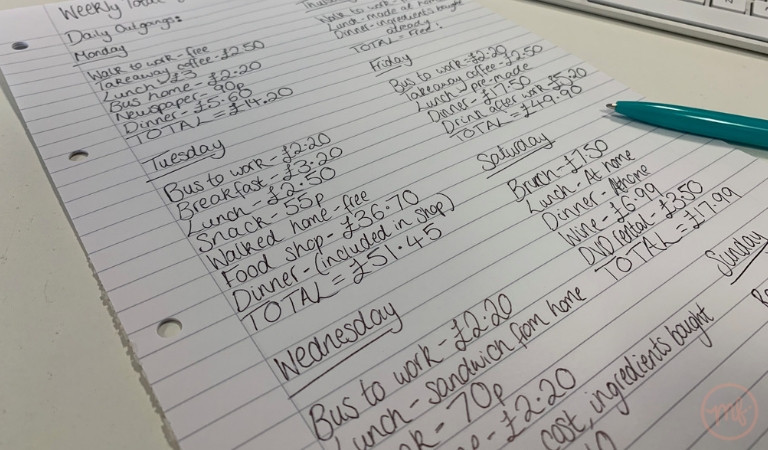 Weekly Total
Daily Outgoings:
Monday
Walk to work - free
Takeaway coffee - £2.50
Lunch - £3
Bus home - £2.20
Newspaper - 90p
Dinner - £5.60
TOTAL = £14.20
Tuesday
Bus to work - £2.20
Breakfast - £3.20
Lunch - £2.50
Snack - 55p
Walked home - free
Food shop - £36.70
Dinner - (included in shop)
TOTAL = £51.45
Wednesday
Bus to work - £2.20
Lunch - sandwich from home
- 70p
- £2.20
cost, ingredients bought
Walk to work -
Lunch - made at home
Dinner - ingredients bought
already
TOTAL = Free!
Friday
Bus to work - £2.20
Takeaway coffee - £2.50
Lunch - pre-made
Dinner - £17.50
Drink after work -
TOTAL = £49.90
Saturday
Brunch - £7.50
Lunch - At home
Dinner - At home
Wine - £6.99
DVD rental - £3.50
TOTAL = £17.99
Sunday